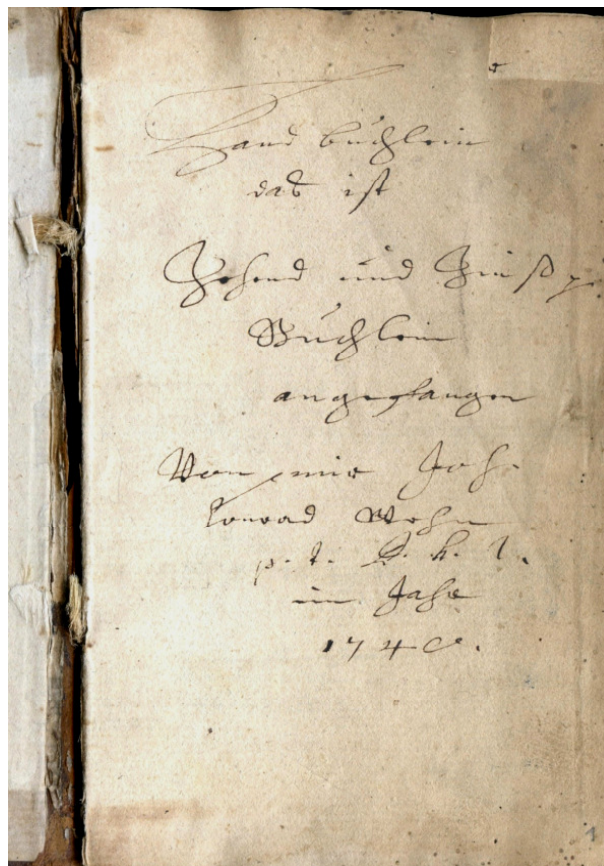 Hand büchlein
das ist
Zehend und Zinß
Büchlein
angefangen
Von mir Joh.
Konrad
p. t.
im Jahr
1740.
1